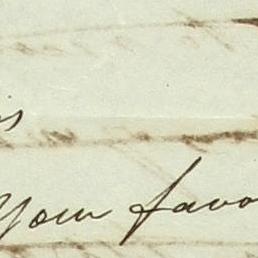 Your favo